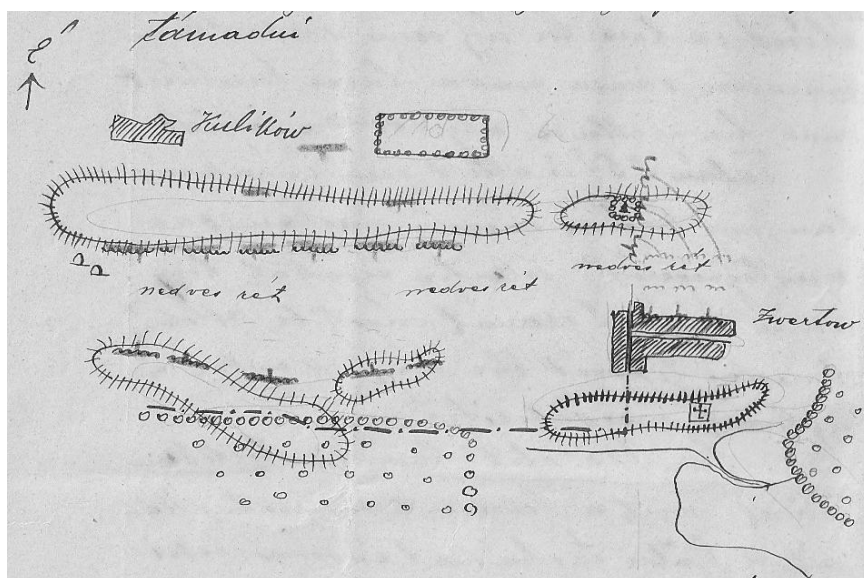 támadni
É
Kulików
nedves rét
nedves rét
nedves rét
Zwertow